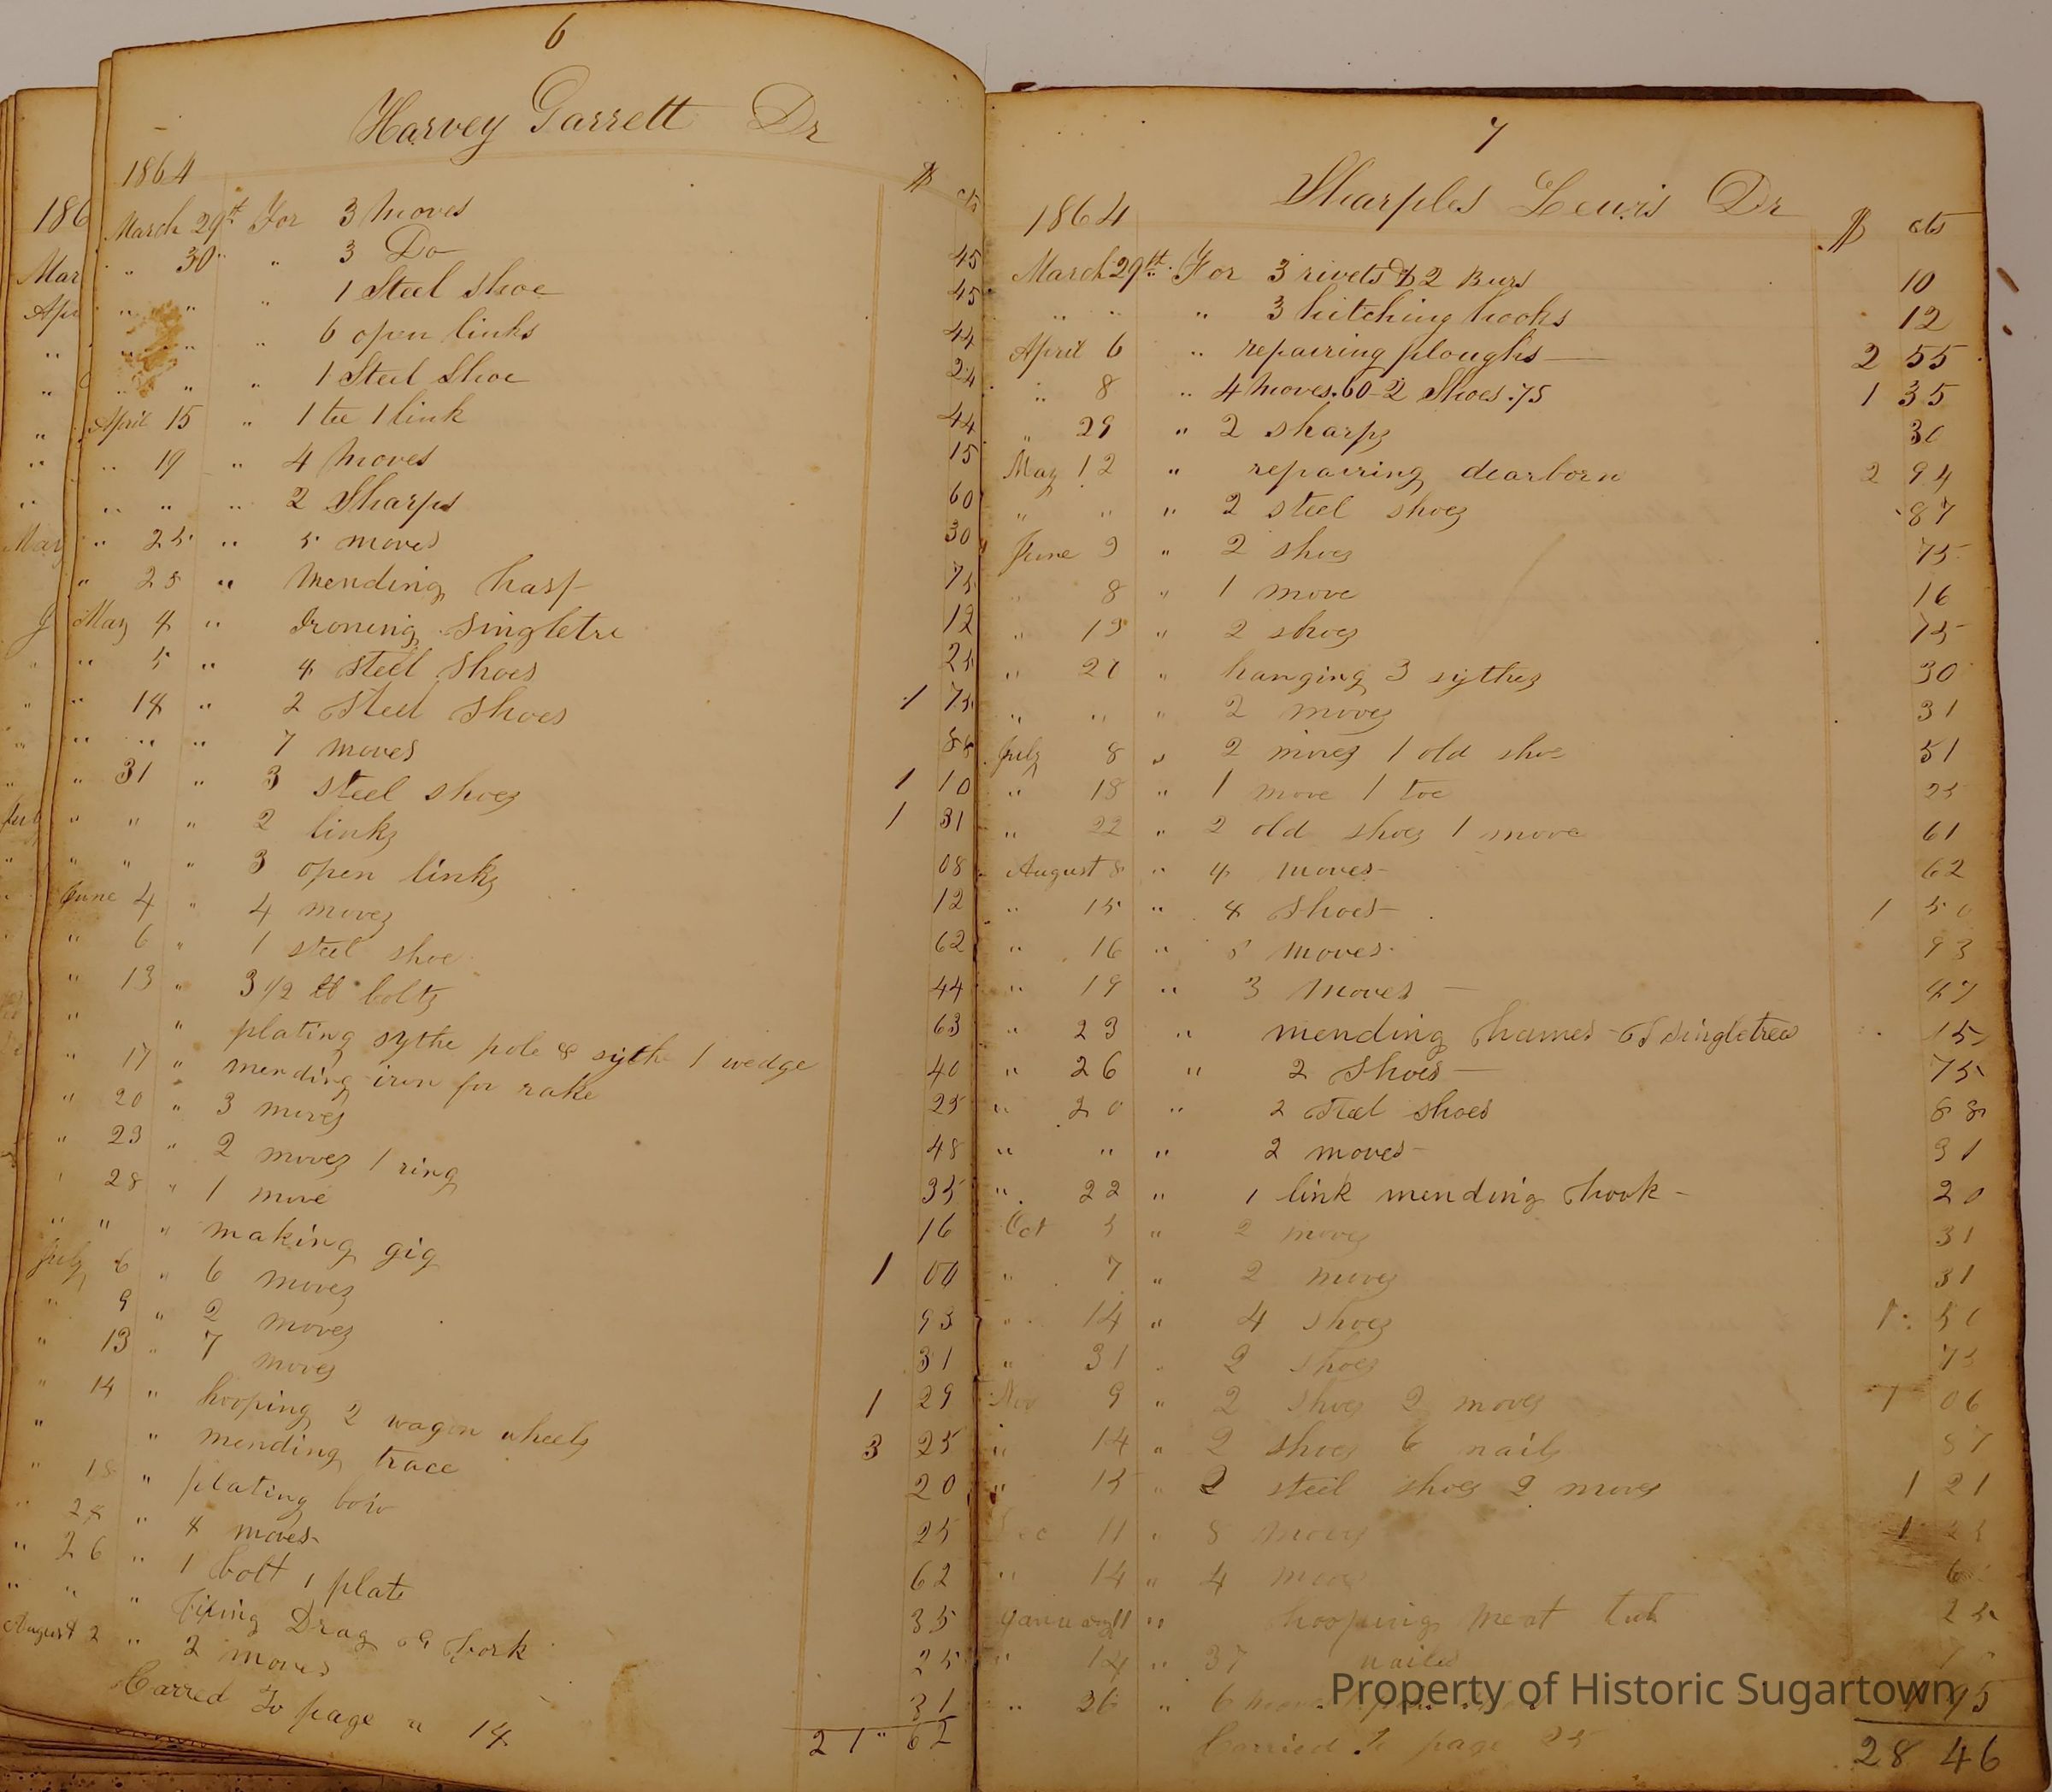 6
Harvey Garrett Dr
1864 $ cts
March 29th For 3 moves 45
" 30 " 3 Do 45
" " " 1 Steel Shoe 44
" " " 6 open links 24
" " " 1 Steel Shoe 44
April 15 " 1 toe 1 link 15
" 19 " 4 moves 60
" " " 2 Sharps 30
" 25 " 5 moves 75
" 28 " Mending hasp 12
May 4 " Ironing Singletre 25
" 5 " 4 steel shoes 1 75
" 18 " 2 Steel Shoes 88
" " " 7 moves 1 10
" 31 " 3 steel shoes 1 31
" " " 2 links 08
" " " 3 open links 12
June 4 " 4 moves 62
" 6 " 1 steel shoe 44
" 13 " 3 1/2 lb bolts 63
" " plating sythe pole & sythe 1 wedge 40
" 17 " mending iron for rake 25
" 20 " 3 moves 48
" 23 " 2 moves 1 ring 35
" 28 " 1 move 16
" " " making gig 1 00
July 6 " 6 moves 93
" 9 " 2 moves 31
" 13 " 7 moves 1 29
" 14 " hooping 2 wagon wheels 3 25
" " mending trace 20
" 18 " plating bow 25
" " 4 moves 62
" 26 " 1 bolt 1 plate 35
" " " Fixing Drag fork 25
August 2 " 2 moves 31
Carred To page " 14 21 " 62
186
Mar
Apr
7
Sharples Lewis Dr
1864 $ cts
March 29th For 3 rivets & 2 Burs 10
" " " 3 hitching hooks 12
April 6 " repairing ploughs 2 55
" 8 " 4 moves .60 - 2 Shoes .75 1 35
" 29 " 2 sharps 30
May 12 " repairing dearborn 2 94
" " " 2 steel shoes 87
June 9 " 2 shoes 75
" 8 " 1 move 16
" 19 " 2 shoes 75
" 20 " hanging 3 sythes 30
" " " 2 moves 31
July 8 " 2 moves 1 old shoe 51
" 18 " 1 move 1 toe 25
" 22 " 2 old shoes 1 move 61
August 8 " 4 moves 62
" 15 " 4 Shoes 1 50
" 16 " moves 93
" 19 " 3 moves 47
" 23 " mending hames & singletrea 15
" 26 " 2 Shoes 75
" 20 " 2 Steel shoes 88
" " " 2 moves 31
" 22 " 1 link mending hook 20
Oct 5 " 2 moves 31
" 7 " 2 moves 31
" 14 " 4 shoes 1 50
" 31 " 2 shoes 75
Nov 9 " 2 shoes 2 moves 1 06
" 14 " 2 shoes 6 nails 87
" 15 " 2 steel shoes 2 moves 1 21
Dec 11 " 8 moves 1 25
" 14 " 4 moves
January 11 " hooping meat tub 25
" 14 " 37 nailes
" 26 " 6 95
Carried To page 25 28 46
Property of Historic Sugartown